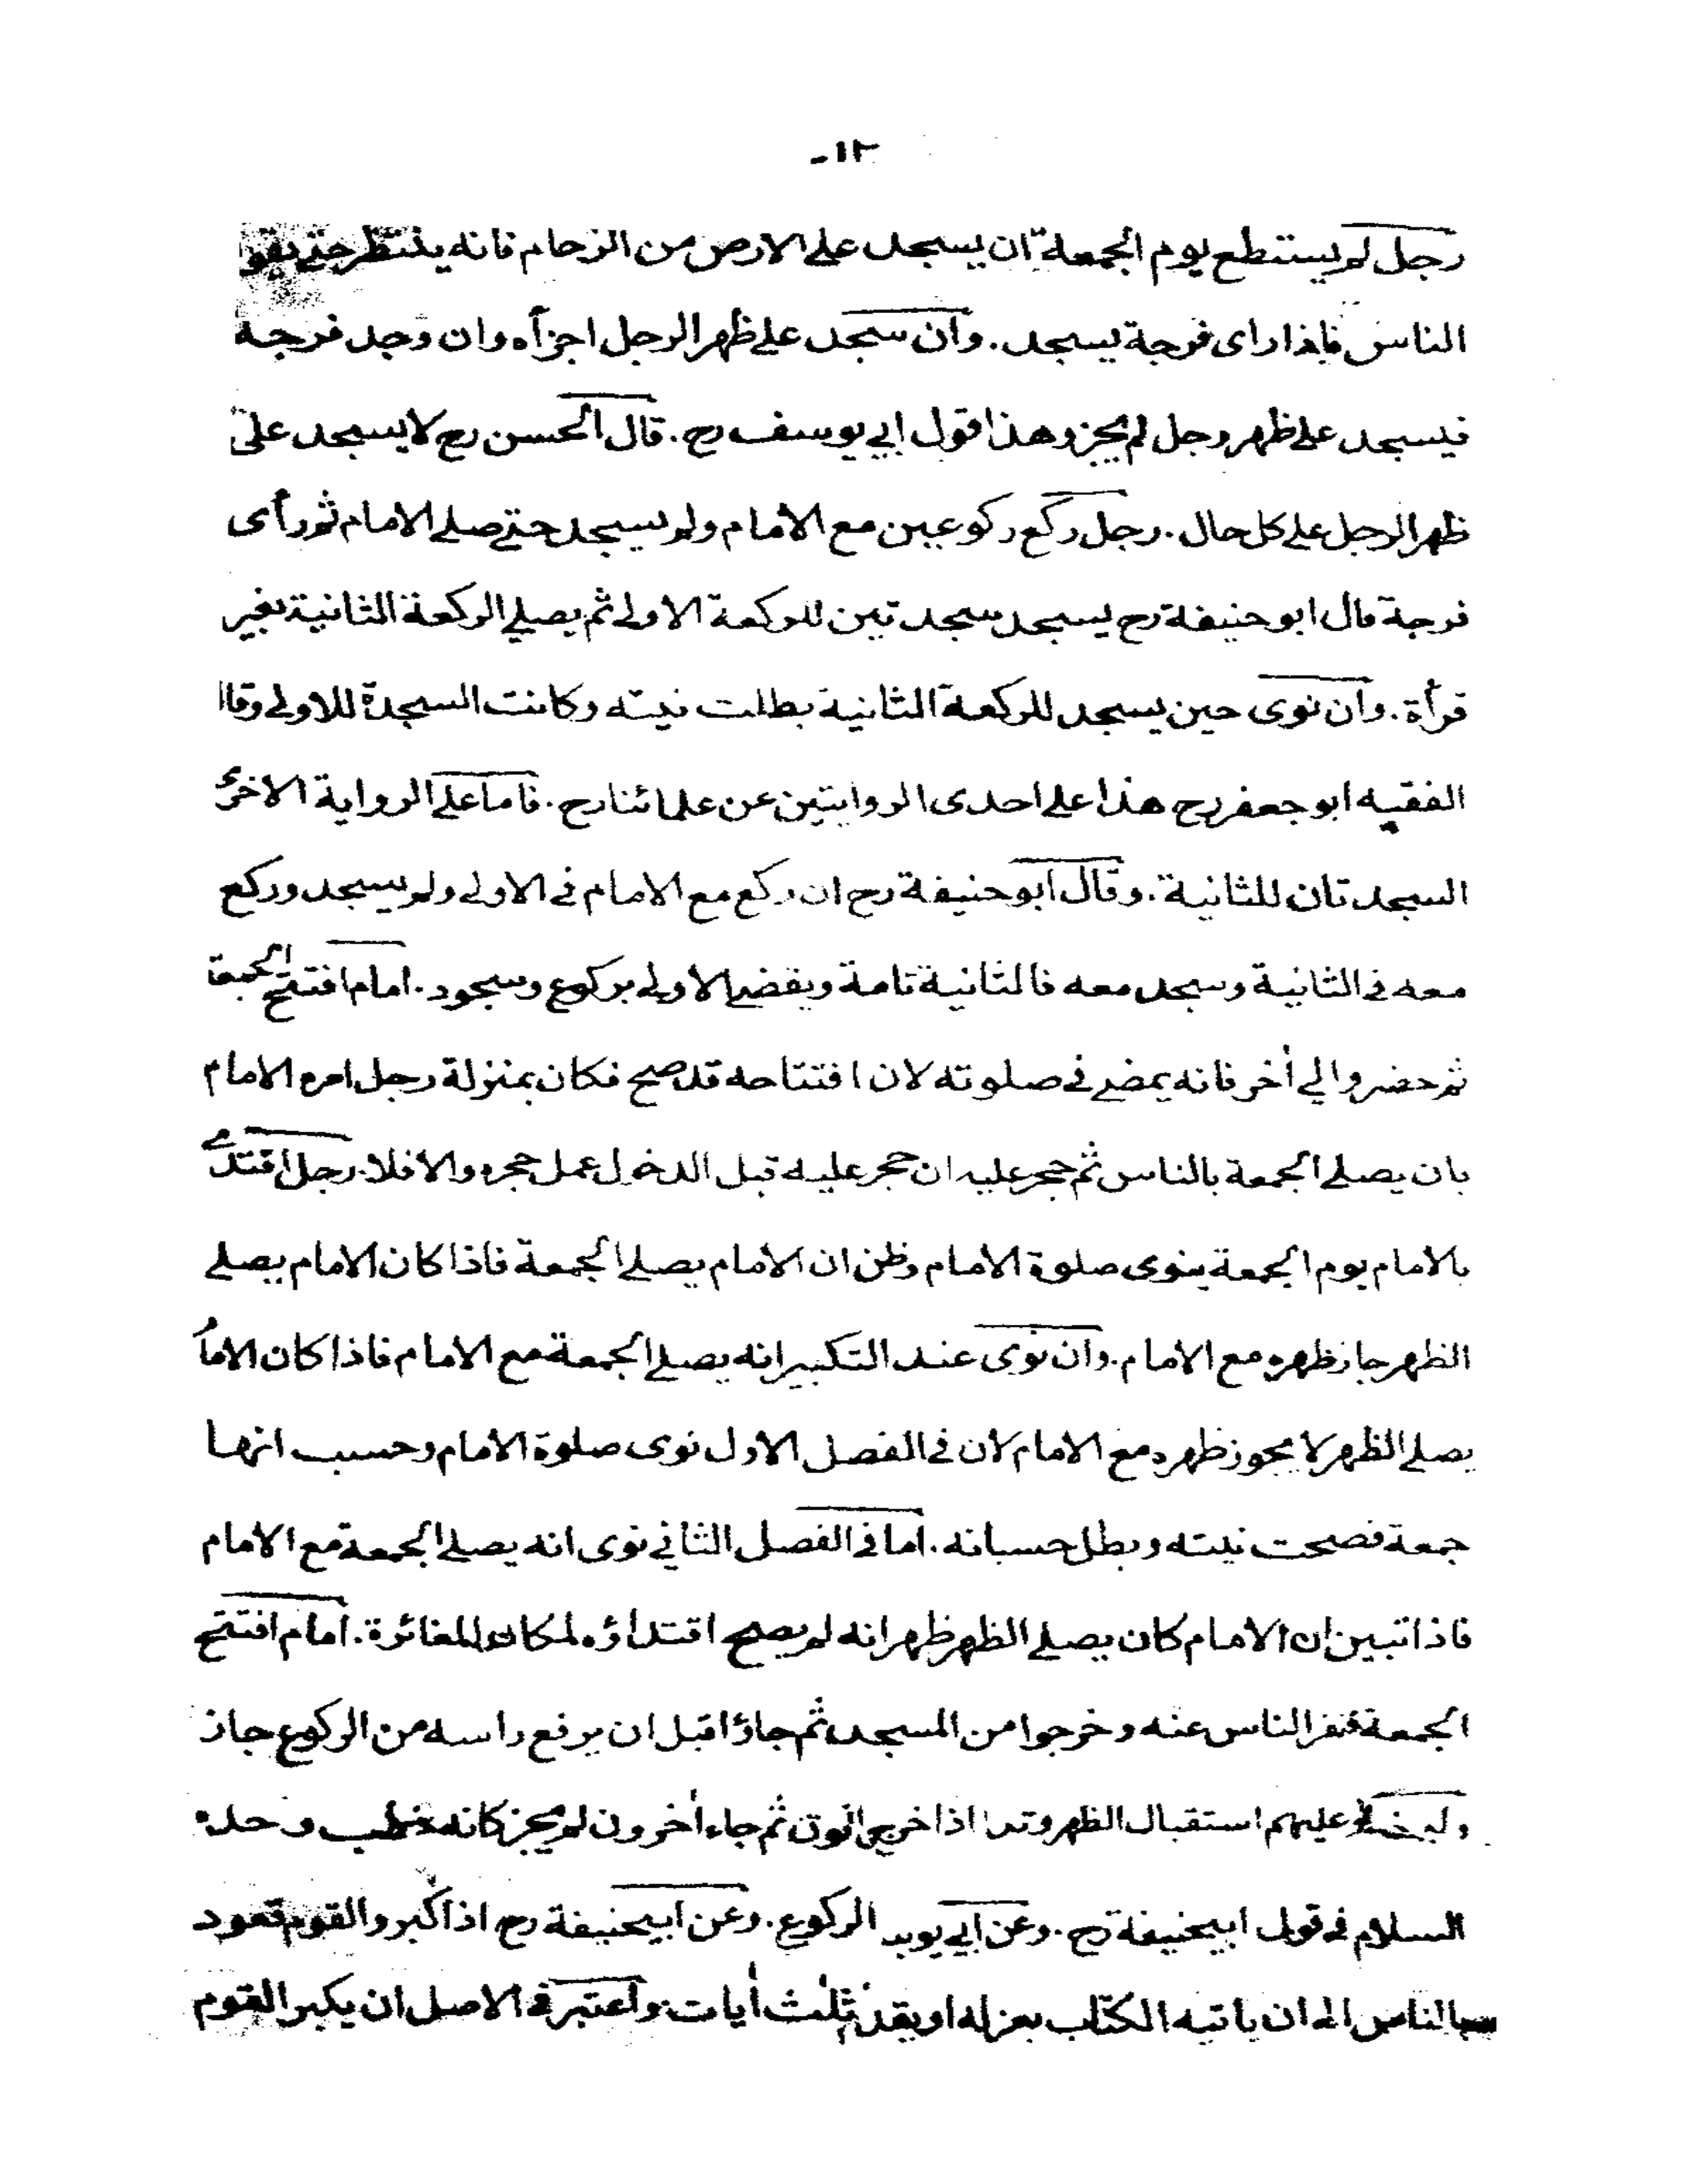 ١٢-
رجل لم يستطع يوم الجمعة ان يسجد على الارض من الزحام فانه ينتظر حتى يقوم
الناس فاذا راى فرجة يسجد. وان سجد على ظهر الرجل اجزأه وان وجد فرجة
فيسجد على ظهر رجل لم يجز وهذا قول ابي يوسف رح. قال الحسن رح لا يسجد على
ظهر الرجل على كل حال. رجل ركع ركوعين مع الامام ولم يسجد حتى صلى الامام ثم رأى
فرجة قال ابو حنيفة رح يسجد سجدتين للركعة الاولى ثم يصلي الركعة الثانية بغير
قرأة. وان نوى حين يسجد للركعة الثانية بطلت نيته وكانت السجدة للاولى وقال
الفقيه ابو جعفر رح هذا على احدى الروايتين عن علمائنا رح. فاما على الرواية الاخرى
السجدتان للثانية. وقال ابو حنيفة رح ان ركع مع الامام في الاولى ولم يسجد وركع
معه في الثانية وسجد معه فالثانية تامة ويقضي الاولى بركوع وسجود. امام افتتح الجمعة
ثم حضر والي أخر فانه يمضي في صلوته لان افتتاحه قد صح فكان بمنزلة رجل امره الامام
بان يصلي الجمعة بالناس ثم حجر عليه ان حجر عليه قبل الدخول عمل حجره والا فلا. رجل اقتدى
بالامام يوم الجمعة ينوى صلوة الامام وظن ان الامام يصلي الجمعة فاذا كان الامام يصلي
الظهر جاز ظهره مع الامام. وان نوى عند التكبير انه يصلي الجمعة مع الامام فاذا كان الامام
يصلي الظهر لا يجوز ظهره مع الامام لان في الفصل الاول نوى صلوة الامام وحسب انها
جمعة فصحت نيته وبطل حسبانه. اما في الفصل الثاني نوى انه يصلي الجمعة مع الامام
فاذا تبين ان الامام كان يصلي الظهر ظهر انه لم يصح اقتداؤه لمكان المغائرة. امام افتتح
الجمعة فنفر الناس عنه وخرجوا من المسجد ثم جاؤا قبل ان يرفع راسه من الركوع جاز
عليهم استقبال الظهر اذا خرج ثم جاء أخرون لم يجز كانه خطب وحده
السلام في قول ابيحنيفة رح. وعن ابي الركوع. وعن ابيحنيفة رح اذا كبر والقوم قعود
بالناس الى ان ياتيه الكتاب بعزله او يقدم ثلث أيات. واعتبر في الاصل ان يكبر القوم